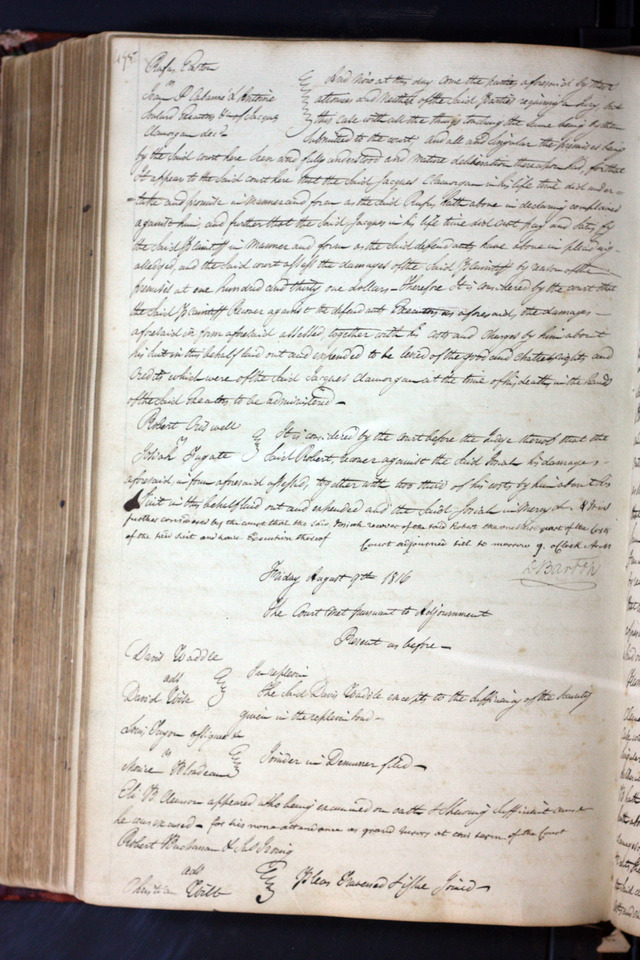 Rufus Easton
vs
Jean P Cabanné & Antoine
Soulard Executors &c of Jacques
Clamorgan decd
And now at this day come the parties aforesaid by their
attornies and neither of the said Parties requiring a Jury, but
this case with all the things touching the same being by them
submitted to the court and all and singular the premises being
by the said court here seen and fully understood and mature deliberation thereupon had, for that
it appear to the said court here that the said Jacques Clamorgan in his life time did under-
-take and promise in manner and form as the said Rufus hath above in declaring complained
against him, and further that the said Jacques in his life time did not pay and satisfy
the said Plaintiff in manner and form as the said defendants have above in pleading
alledged, and the said court assess the damages of the said Plaintiff by reason of the
premises at one hundred and thirty one dollars - Therefore It is considered by the court that
the said Plaintiff Recover against the defendants Executors as aforesaid, the damages -
aforesaid in form aforesaid assessed together with his costs and charges by him about
his suit in this behalf laid out and expended to be levied of the good and chattels rights and
Credits which were of the said Jacques Clamorgan at the time of his death, in the hands
of the said Executors to be administered -
Robert Criswell
vs
Josiah Fugate
It is considered by the court before the Judge thereof that the
said Robert, recover against the said Josiah his damages -
aforesaid, in form aforesaid assessed, together with two thirds of his costs by him about his
suit in this behalf laid out and expended and the said Josiah in mercy &c. & It is
further considered by the court that the said Josiah recover of the said Robert the one third part of the costs
of the said suit and have Execution thereof
Court adjourned till to morrow 9. oClock A.M.
Friday August 9th 1816
The Court met pursuant to Adjournment
Present as before -
Davis Waddle
ads
David
In replevin
The said Davis Waddle excepts to the sufficiency of the security
given in the replevin bond -
Louis assignee &c
vs
Moise Blondeau
Joinder in Demurrer filed -
Eli B. Clemson appeared who being examined on oath & shewing sufficient cause
he was excused - for his none attendance as grand Juror at last term of the Court
Robert Buchanan & Jas Irwin
ads
Christian Wilt
Pleas Traversed & issue Joined -